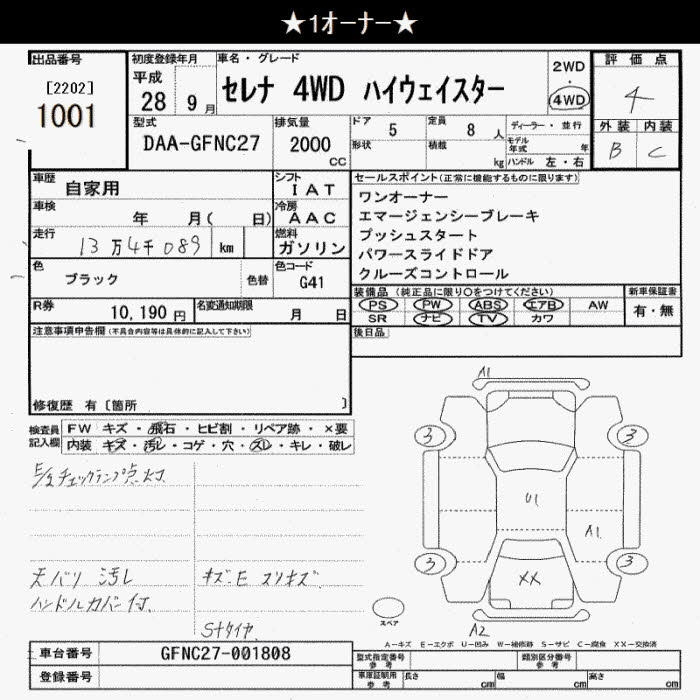 ★1オーナー★
出品番号
[2202]
1001
初度登録年月
平成
28 9月
車名・グレード
セレナ 4WD ハイウェイスター
2WD
・
4WD
評価点
4
外装 内装
B C
型式
DAA-GFNC27
排気量
2000
cc
ドア
5
形状
定員
8 人
積載
kg
ディーラー・並行
モデル年式 年
ハンドル 左・右
車歴
自家用
シフト
I A T
車検
年 月( 日)
冷房
A A C
走行
13万4千089 km
燃料
ガソリン
色
ブラック
色替
色コード
G41
R券
10,190 円
名変通知期限
月 日
セールスポイント(正常に機能するものに限ります)
ワンオーナー
エマージェンシーブレーキ
プッシュスタート
パワースライドドア
クルーズコントロール
装備品(純正品に限り○をつけてください)
PS PW ABS エアB AW
SR ナビ TV カワ
新車保証書
有・無
後日品
注意事項申告欄(不具合内容等は具体的に記入して下さい)
修復歴 有〔箇所 〕
検査員
記入欄
FW キズ・飛石・ヒビ割・リペア跡・×要
内装 キズ・汚レ・コゲ・穴・スレ・キレ・破レ
E/gチェックランプ点灯
天バリ 汚レ
ハンドルカバー付.
キズE スリキズ
Sナタイヤ.
A1
3 3
U1
A1
3 3
XX
A2
スペア
A−キズ E−エクボ U−凹み W−補修跡 S−サビ C−腐食 XX−交換済
車台番号
GFNC27-001808
登録番号
型式指定番号
参考
類別区分番号
参考
車庫証明用
参考
長さ cm 幅 cm 高さ cm